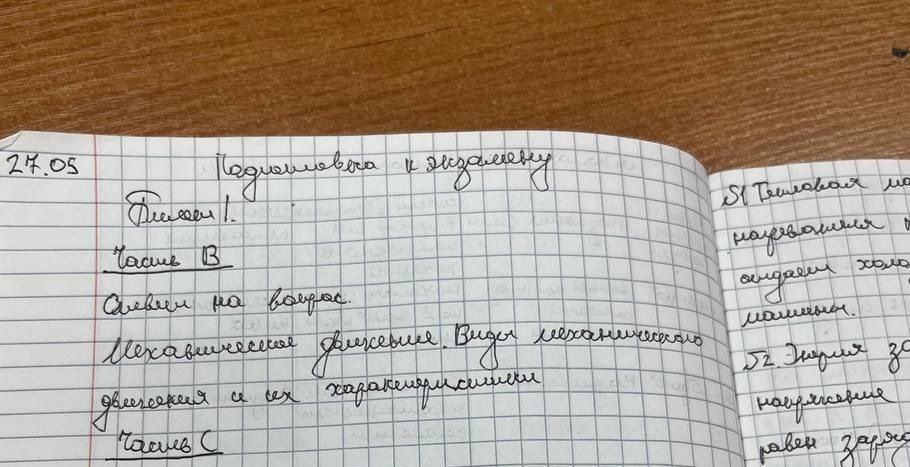 27.05
Подготовка к экзамену
Билет 1.
Часть В
Ответ на вопрос.
Механическое движение. Виды механического
движения и их характеристики
Часть С
51 Тепловая
нагревателя
отдает холо
машины.
52. Энергия за
напряжение
равен заряд